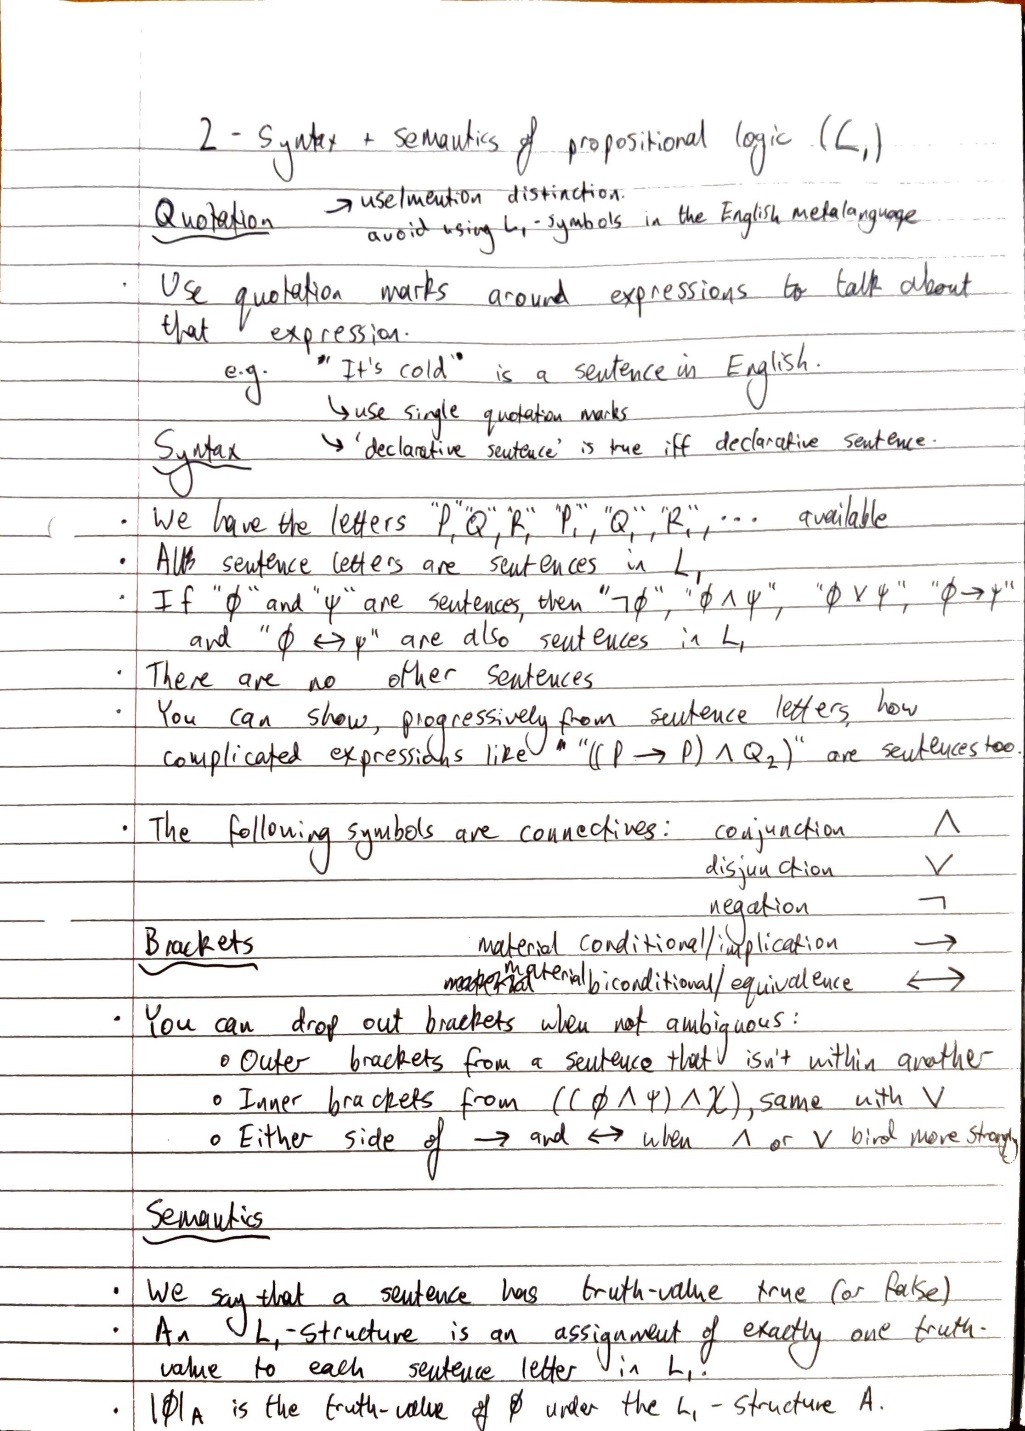 2 - Syntax + semantics of propositional logic (L₁)
Quotation → use/mention distinction.
avoid using L₁-symbols in the English metalanguage
· Use quotation marks around expressions to talk about
that expression.
e.g. "It's cold" is a sentence in English.
↳ use single quotation marks
Syntax ↳ 'declarative sentence' is true iff declarative sentence.
· We have the letters "P", "Q", "R", "P₁", "Q₁", "R₁", ... available
· All sentence letters are sentences in L₁
· If "ϕ" and "ψ" are sentences, then "¬ϕ", "ϕ ∧ ψ", "ϕ ∨ ψ", "ϕ → ψ"
and "ϕ ↔ ψ" are also sentences in L₁
· There are no other sentences
· You can show, progressively from sentence letters, how
complicated expressions like "((P → P) ∧ Q₂)" are sentences too.
· The following symbols are connectives: conjunction ∧
disjunction ∨
negation ¬
Brackets material conditional/implication →
material biconditional/equivalence ↔
· You can drop out brackets when not ambiguous:
∘ Outer brackets from a sentence that isn't within another
∘ Inner brackets from ((ϕ ∧ ψ) ∧ χ), same with ∨
∘ Either side of → and ↔ when ∧ or ∨ bind more strongly
Semantics
· We say that a sentence has truth-value true (or false)
· An L₁-structure is an assignment of exactly one truth-
value to each sentence letter in L₁.
· |ϕ|A is the truth-value of ϕ under the L₁-structure A.